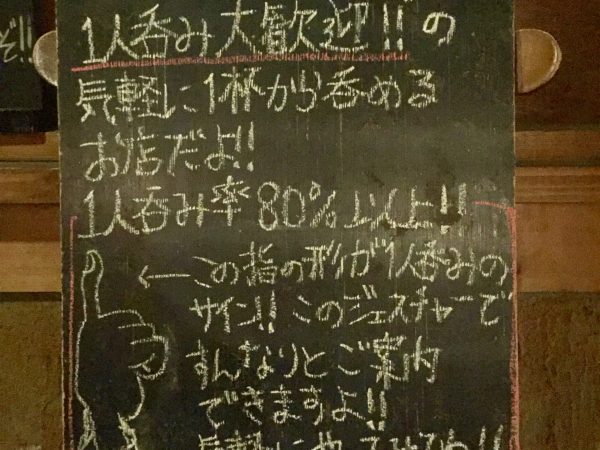 ぞ!!
1人呑み大歓迎!!の
気軽に1杯から呑める
お店だよ!!
1人呑み率80%以上!!
←この指の形が1人呑みの
サイン!!このジェスチャーで
すんなりとご案内
できますよ!!
気軽に